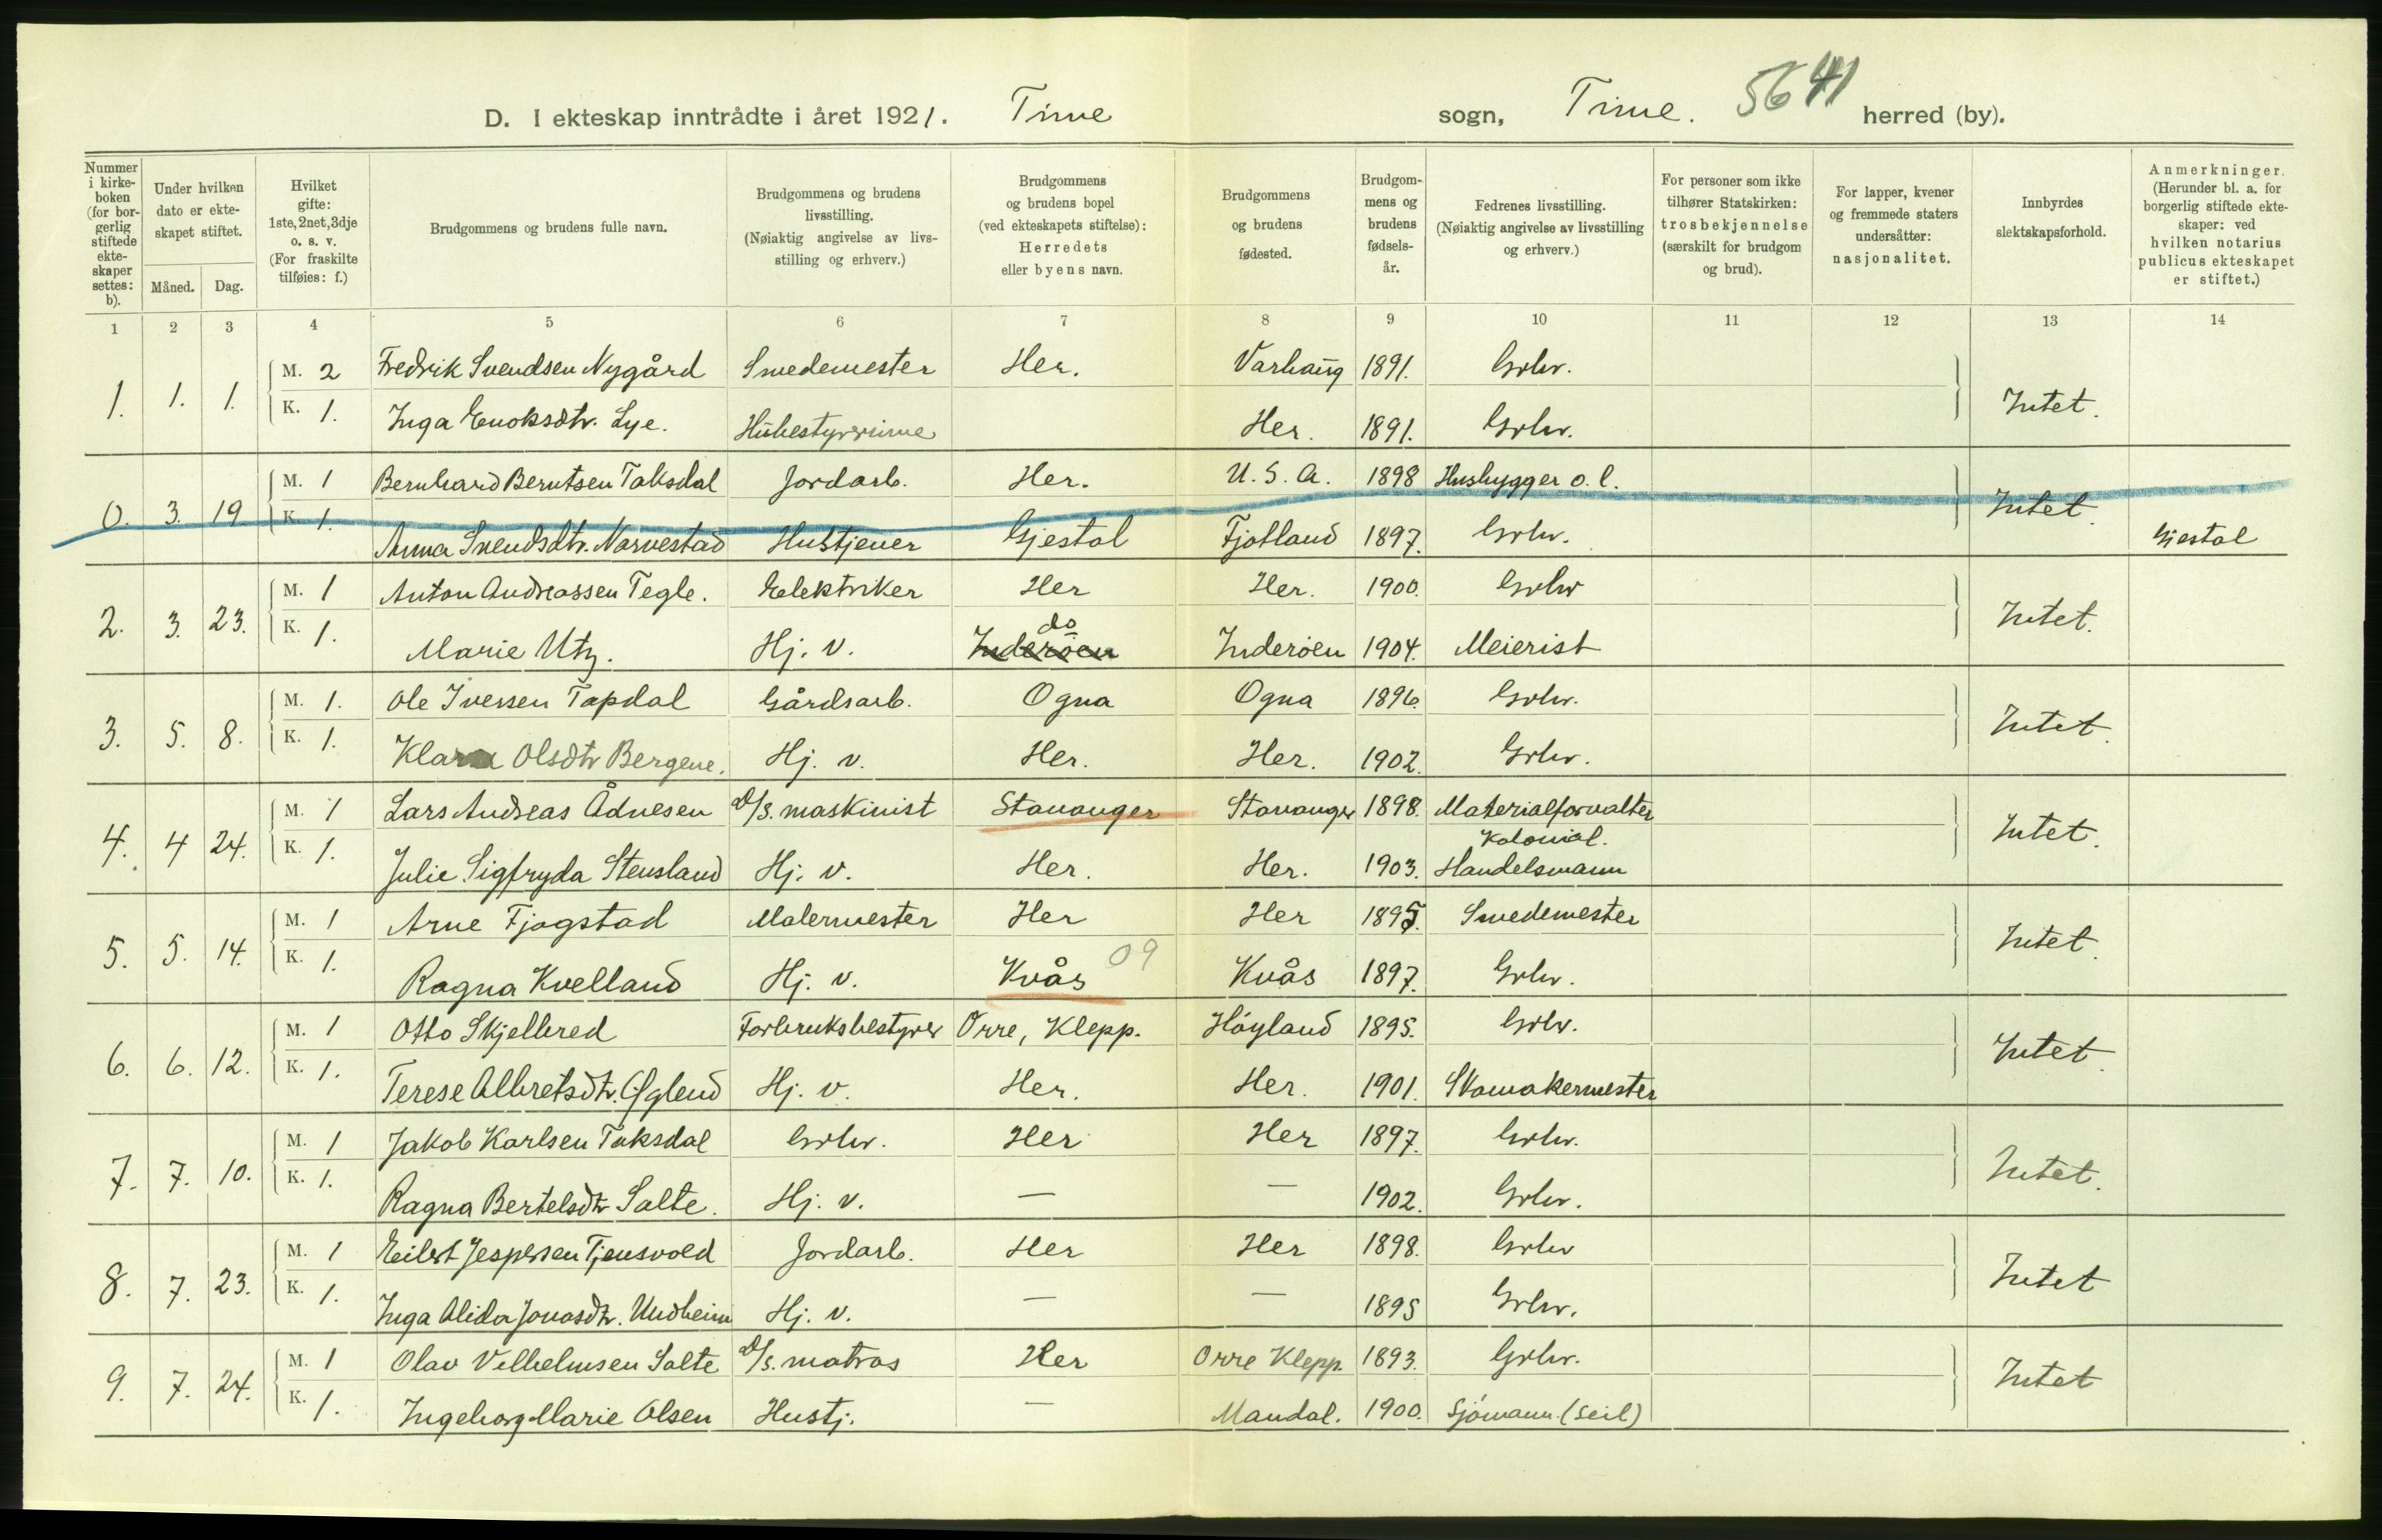 D. I ekteskap inntrådte i året 1921. Time sogn, Time. 5641 herred (by).
Nummer i kirkeboken (for borgerlig stiftede ekteskaper settes: b).
Under hvilken dato er ekteskapet stiftet.
Måned. Dag.
Hvilket gifte: 1ste, 2net, 3dje o. s. v. (For fraskilte tilføies: f.)
Brudgommens og brudens fulle navn.
Brudgommens og brudens livsstilling. (Nøiaktig angivelse av livsstilling og erhverv.)
Brudgommens og brudens bopel (ved ekteskapets stiftelse): Herredets eller byens navn.
Brudgommens og brudens fødested.
Brudgommens og brudens fødselsår.
Fedrenes livsstilling. (Nøiaktig angivelse av livsstilling og erhverv.)
For personer som ikke tilhører Statskirken: trosbekjennelse (særskilt for brudgom og brud).
For lapper, kvener og fremmede staters undersåtter: nasjonalitet.
Innbyrdes slektskapsforhold.
Anmerkninger. (Herunder bl. a. for borgerlig stiftede ekteskaper: ved hvilken notarius publicus ekteskapet er stiftet.)
1 2 3 4 5 6 7 8 9 10 11 12 13 14
1. 1. 1. M. 2 Fredrik Svendsen Nygård Smedemester Her. Varhaug 1891. Grbr. Intet.
K. 1. Inga Enoksdtr. Lye. Husbestyrerinne Her. 1891. Grbr.
0. 3. 19 M. 1 Bernhard Berntsen Taksdal Jordarb. Her. U. S. A. 1898 Husbygger o. l. Intet.
K. 1. Anna Svendsdtr. Norvestad Hustjener Gjestal Fjotland 1897. Grbr. Gjestal
2. 3. 23. M. 1 Anton Andreassen Tegle. Elektriker Her Her. 1900. Grbr Intet.
K. 1. Marie Utz. Hj. v. Inderøen do Inderøen 1904. Meierist
3. 5. 8. M. 1. Ole Iversen Tapdal Gårdsarb. Ogna Ogna 1896. Grbr. Intet.
K. 1. Klara Olsdtr Bergene. Hj. v. Her. Her. 1902. Grbr.
4. 4 24. M. 1 Lars Andreas Ådnesen D/S. maskinist Stavanger Stavanger 1898. Materialforvalter Intet.
K. 1. Julie Sigfryda Stensland Hj. v. Her. Her. 1903. Kolonial. Handelsmann
5. 5. 14. M. 1 Arne Fjogstad Malermester Her Her 1895. Smedemester Intet.
K. 1. Ragna Kvelland Hj. v. Kvås 09 Kvås 1897. Grbr.
6. 6. 12. M. 1 Otto Skjelbred Forbruksbestyrer Orre, Klepp. Høyland 1895. Grbr. Intet.
K. 1. Terese Albretsdtr. Hj. v. Her. Her. 1901. Skomakermester
7. 7. 10. M. 1 Jakob Karlsen Taksdal Grbr. Her Her 1897. Grbr. Intet.
K. 1. Ragna Bertelsdtr Salte. Hj. v. — — 1902. Grbr.
8. 7. 23. M. 1 Eilert Jespersen Tjensvold Jordarb. Her Her 1898. Grbr Intet
K. 1. Inga Alida Jonasdtr. Undheim Hj. v. — — 1895 Grbr.
9. 7. 24. M. 1 Olav Velhelmsen Salte D/S. matros Her Orre Klepp. 1893. Grbr. Intet
K. 1. Ingeborg Marie Olsen Hustj. — Mandal. 1900. Sjømann. (Seil)